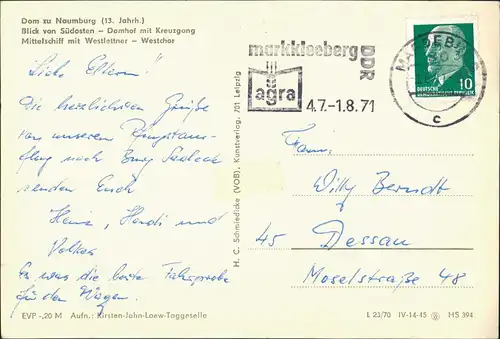 Dom zu Naumburg (13. Jahrh.)
Blick von Südosten – Domhof mit Kreuzgang
Mittelschiff mit Westlettner – Westchor
Liebe Eltern!
Die herzlichsten Grüße
von unserem Pfingstaus-
flug nach Burg Saaleck
senden Euch
Heinz, Heidi und
Volker
Es war die beste Fahrprobe
für den Wagen.
EVP -,20 M Aufn.: Kirsten-John-Loew-Taggeselle
H. C. Schmiedicke (VOB), Kunstverlag, 701 Leipzig
markkleeberg DDR
agra
4.7.-1.8.71
c
DEUTSCHE
DEMOKRATISCHE REPUBLIK
10
Fam.
Willy Berndt
45 Dessau
Moselstraße 48
L 23/70 IV-14-45 HS 394